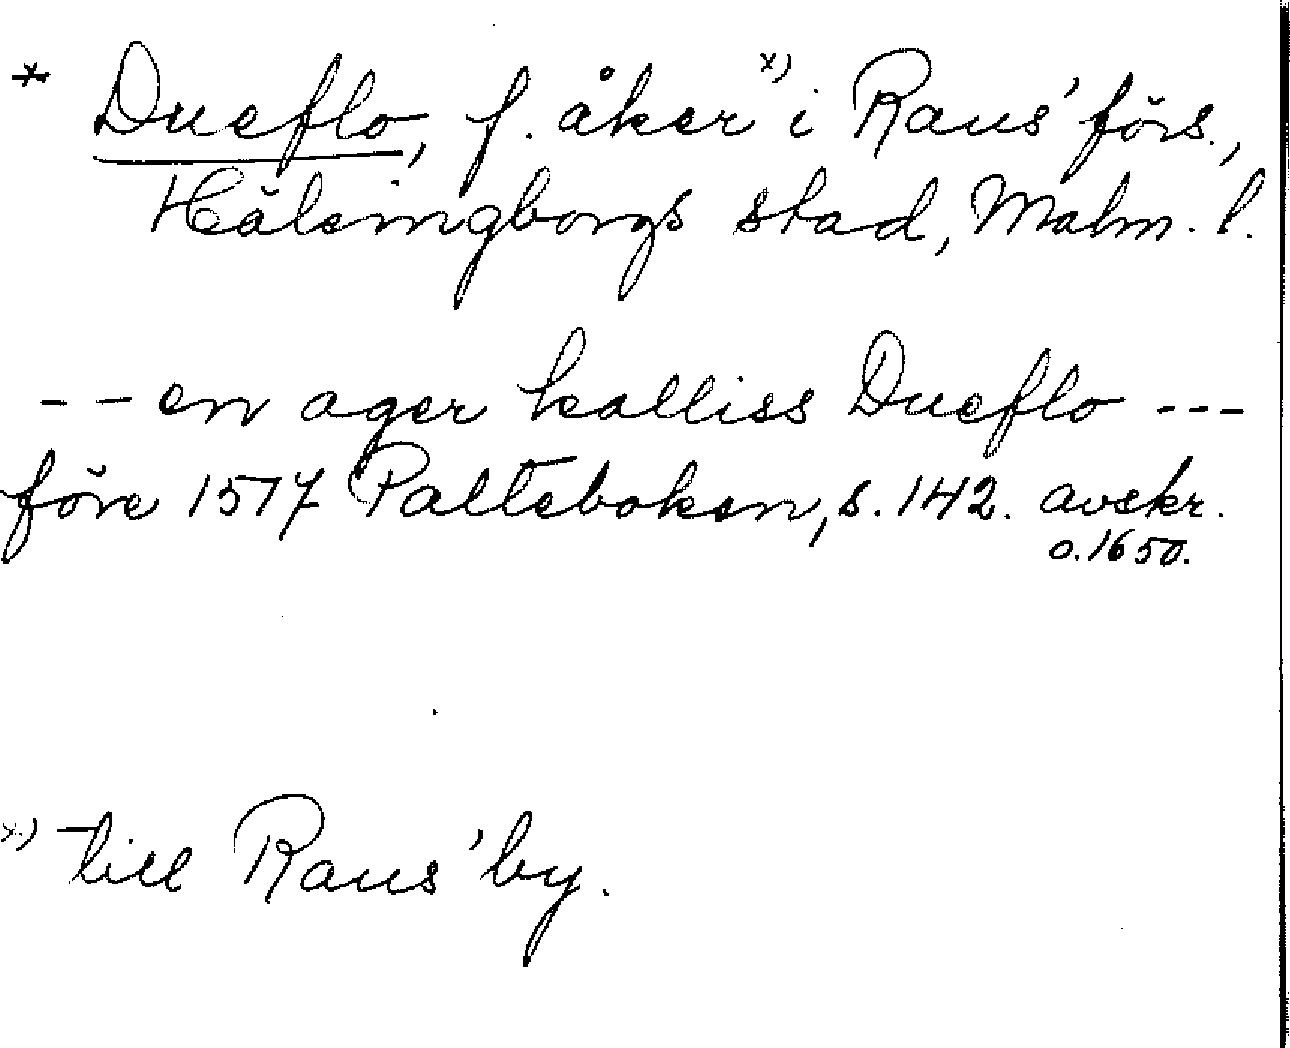 * Dueflo, f. åker x) i Raus' förs.,
Hälsingborgs stad, Malm. l.
-- en ager kalliss Dueflo ---
före 1517 Palteboken, s. 142. avskr.
o. 1650.
x) till Raus' by.